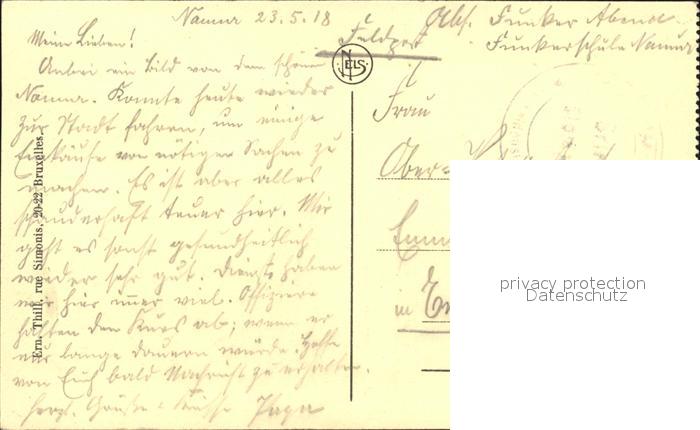 Namur 23.5.18
Meine Lieben!
Anbei ein Bild von dem schönen
Namur. Konnte heute wieder
zur Stadt fahren, um einige
Einkäufe von nötigen Sachen zu
machen. Es ist aber alles
schauderhaft teuer hier. Mir
geht es sonst gesundheitlich
wieder sehr gut. Dienst haben
wir hier immer viel. Offiziere
halten den Kurs ab; wenn er
nur lange dauern würde. Hoffe
von Euch bald Nachricht zu erhalten.
Herzl. Grüße + Küsse Papa
Ern. Thill, rue Simonis, 20-22, Bruxelles.
NELS
Feldpost
Abs. Funker
Funkerschule Namur
Frau
Ober-
in
privacy protection
Datenschutz